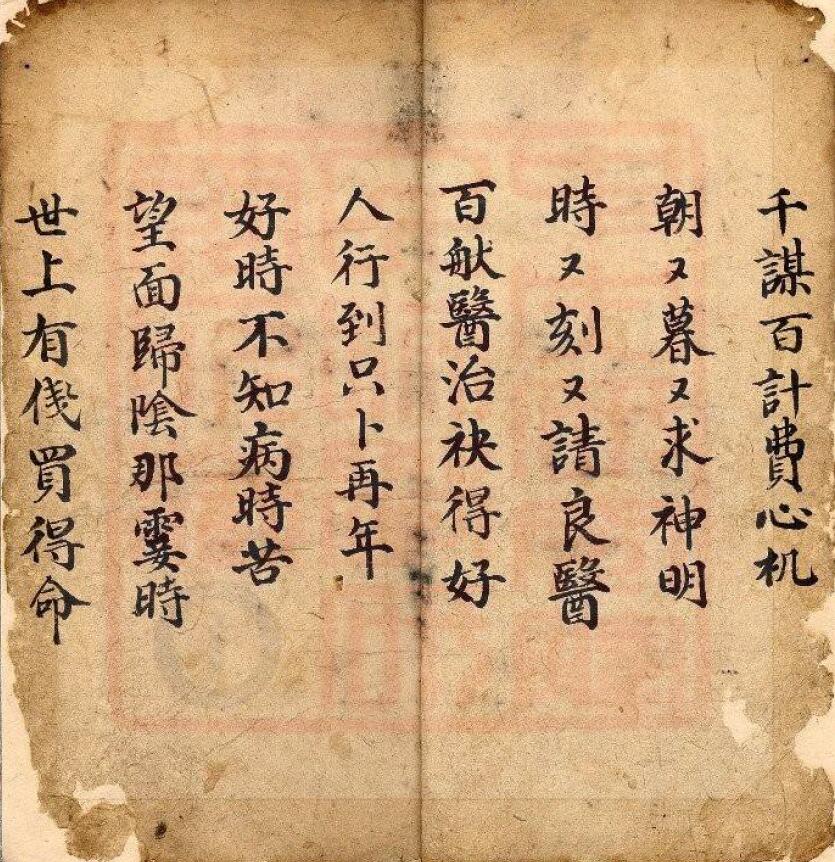 千謀百計費心机
朝又暮又求神明
時又刻又請良醫
百般醫治袂得好
人行到只卜再年
好時不知病時苦
望面歸陰那霎時
世上有伐買得命